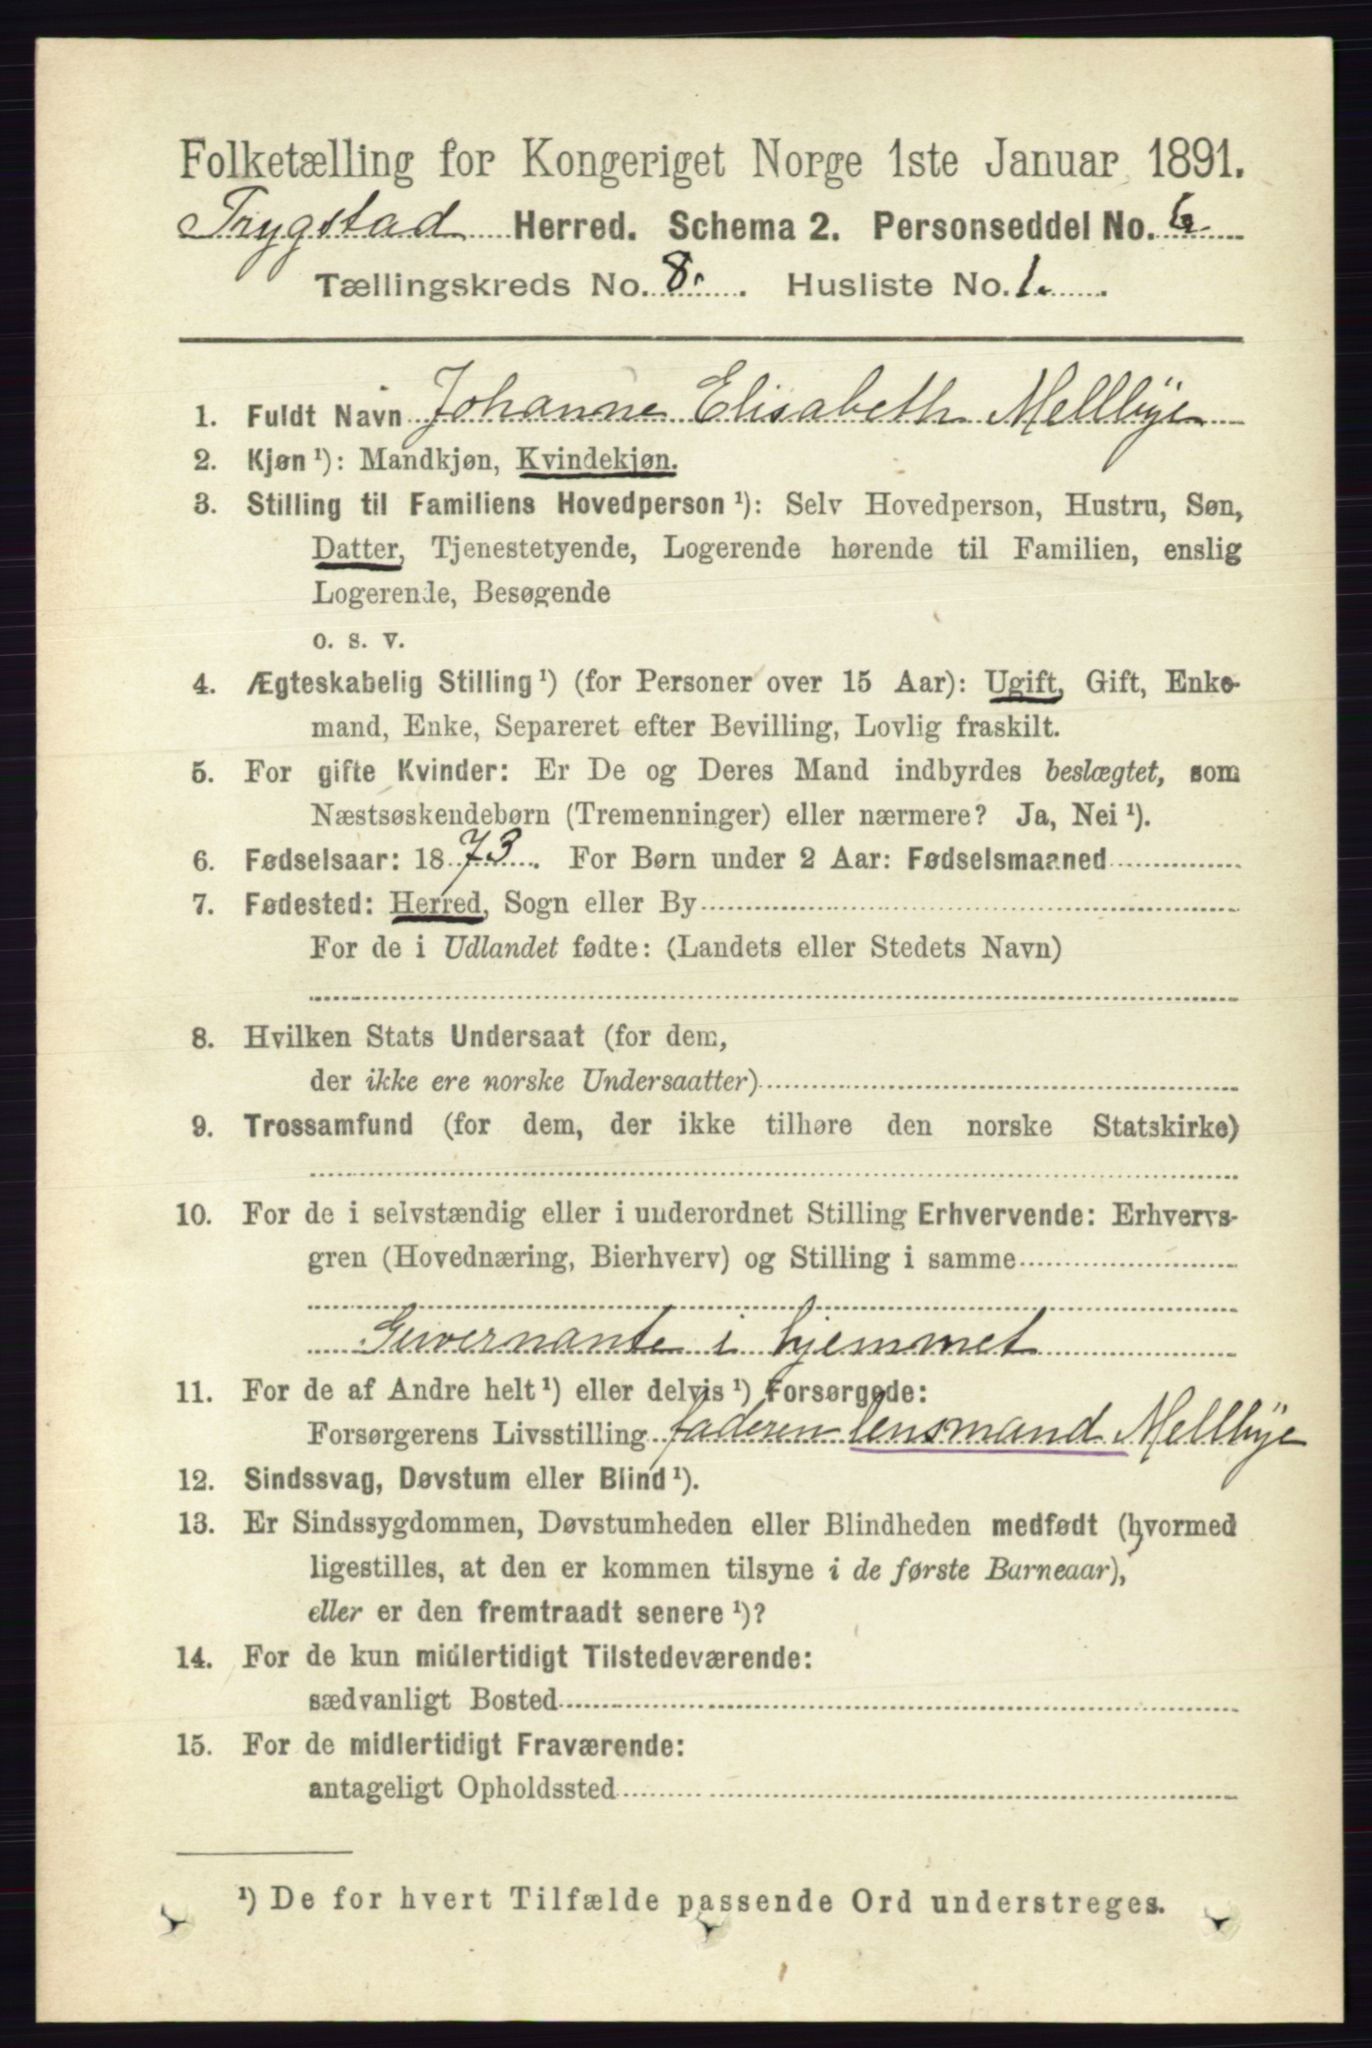 Folketælling for Kongeriget Norge 1ste Januar 1891.
Trygstad Herred. Schema 2. Personseddel No. 6.
Tællingskreds No. 8. Husliste No. 1.
1. Fuldt Navn Johanne Elisabeth Mellbÿe
2. Kjøn ¹): Mandkjøn, Kvindekjøn.
3. Stilling til Familiens Hovedperson ¹): Selv Hovedperson, Hustru, Søn,
Datter, Tjenestetyende, Logerende hørende til Familien, enslig
Logerende, Besøgende
o. s. v.
4. Ægteskabelig Stilling ¹) (for Personer over 15 Aar): Ugift, Gift, Enke-
mand, Enke, Separeret efter Bevilling, Lovlig fraskilt.
5. For gifte Kvinder: Er De og Deres Mand indbyrdes beslægtet, som
Næstsøskendebørn (Tremenninger) eller nærmere? Ja, Nei ¹).
6. Fødselsaar: 1873. For Børn under 2 Aar: Fødselsmaaned
7. Fødested: Herred, Sogn eller By
For de i Udlandet fødte: (Landets eller Stedets Navn)
8. Hvilken Stats Undersaat (for dem,
der ikke ere norske Undersaatter)
9. Trossamfund (for dem, der ikke tilhøre den norske Statskirke)
10. For de i selvstændig eller i underordnet Stilling Erhvervende: Erhvervs-
gren (Hovednæring, Bierhverv) og Stilling i samme
Guvernante i hjemmet
11. For de af Andre helt ¹) eller delvis ¹) Forsørgede:
Forsørgerens Livsstilling faderen lensmand Mellbÿe
12. Sindssvag, Døvstum eller Blind ¹).
13. Er Sindssygdommen, Døvstumheden eller Blindheden medfødt (hvormed
ligestilles, at den er kommen tilsyne i de første Barneaar),
eller er den fremtraadt senere ¹)?
14. For de kun midlertidigt Tilstedeværende:
sædvanligt Bosted
15. For de midlertidigt Fraværende:
antageligt Opholdssted
¹) De for hvert Tilfælde passende Ord understreges.